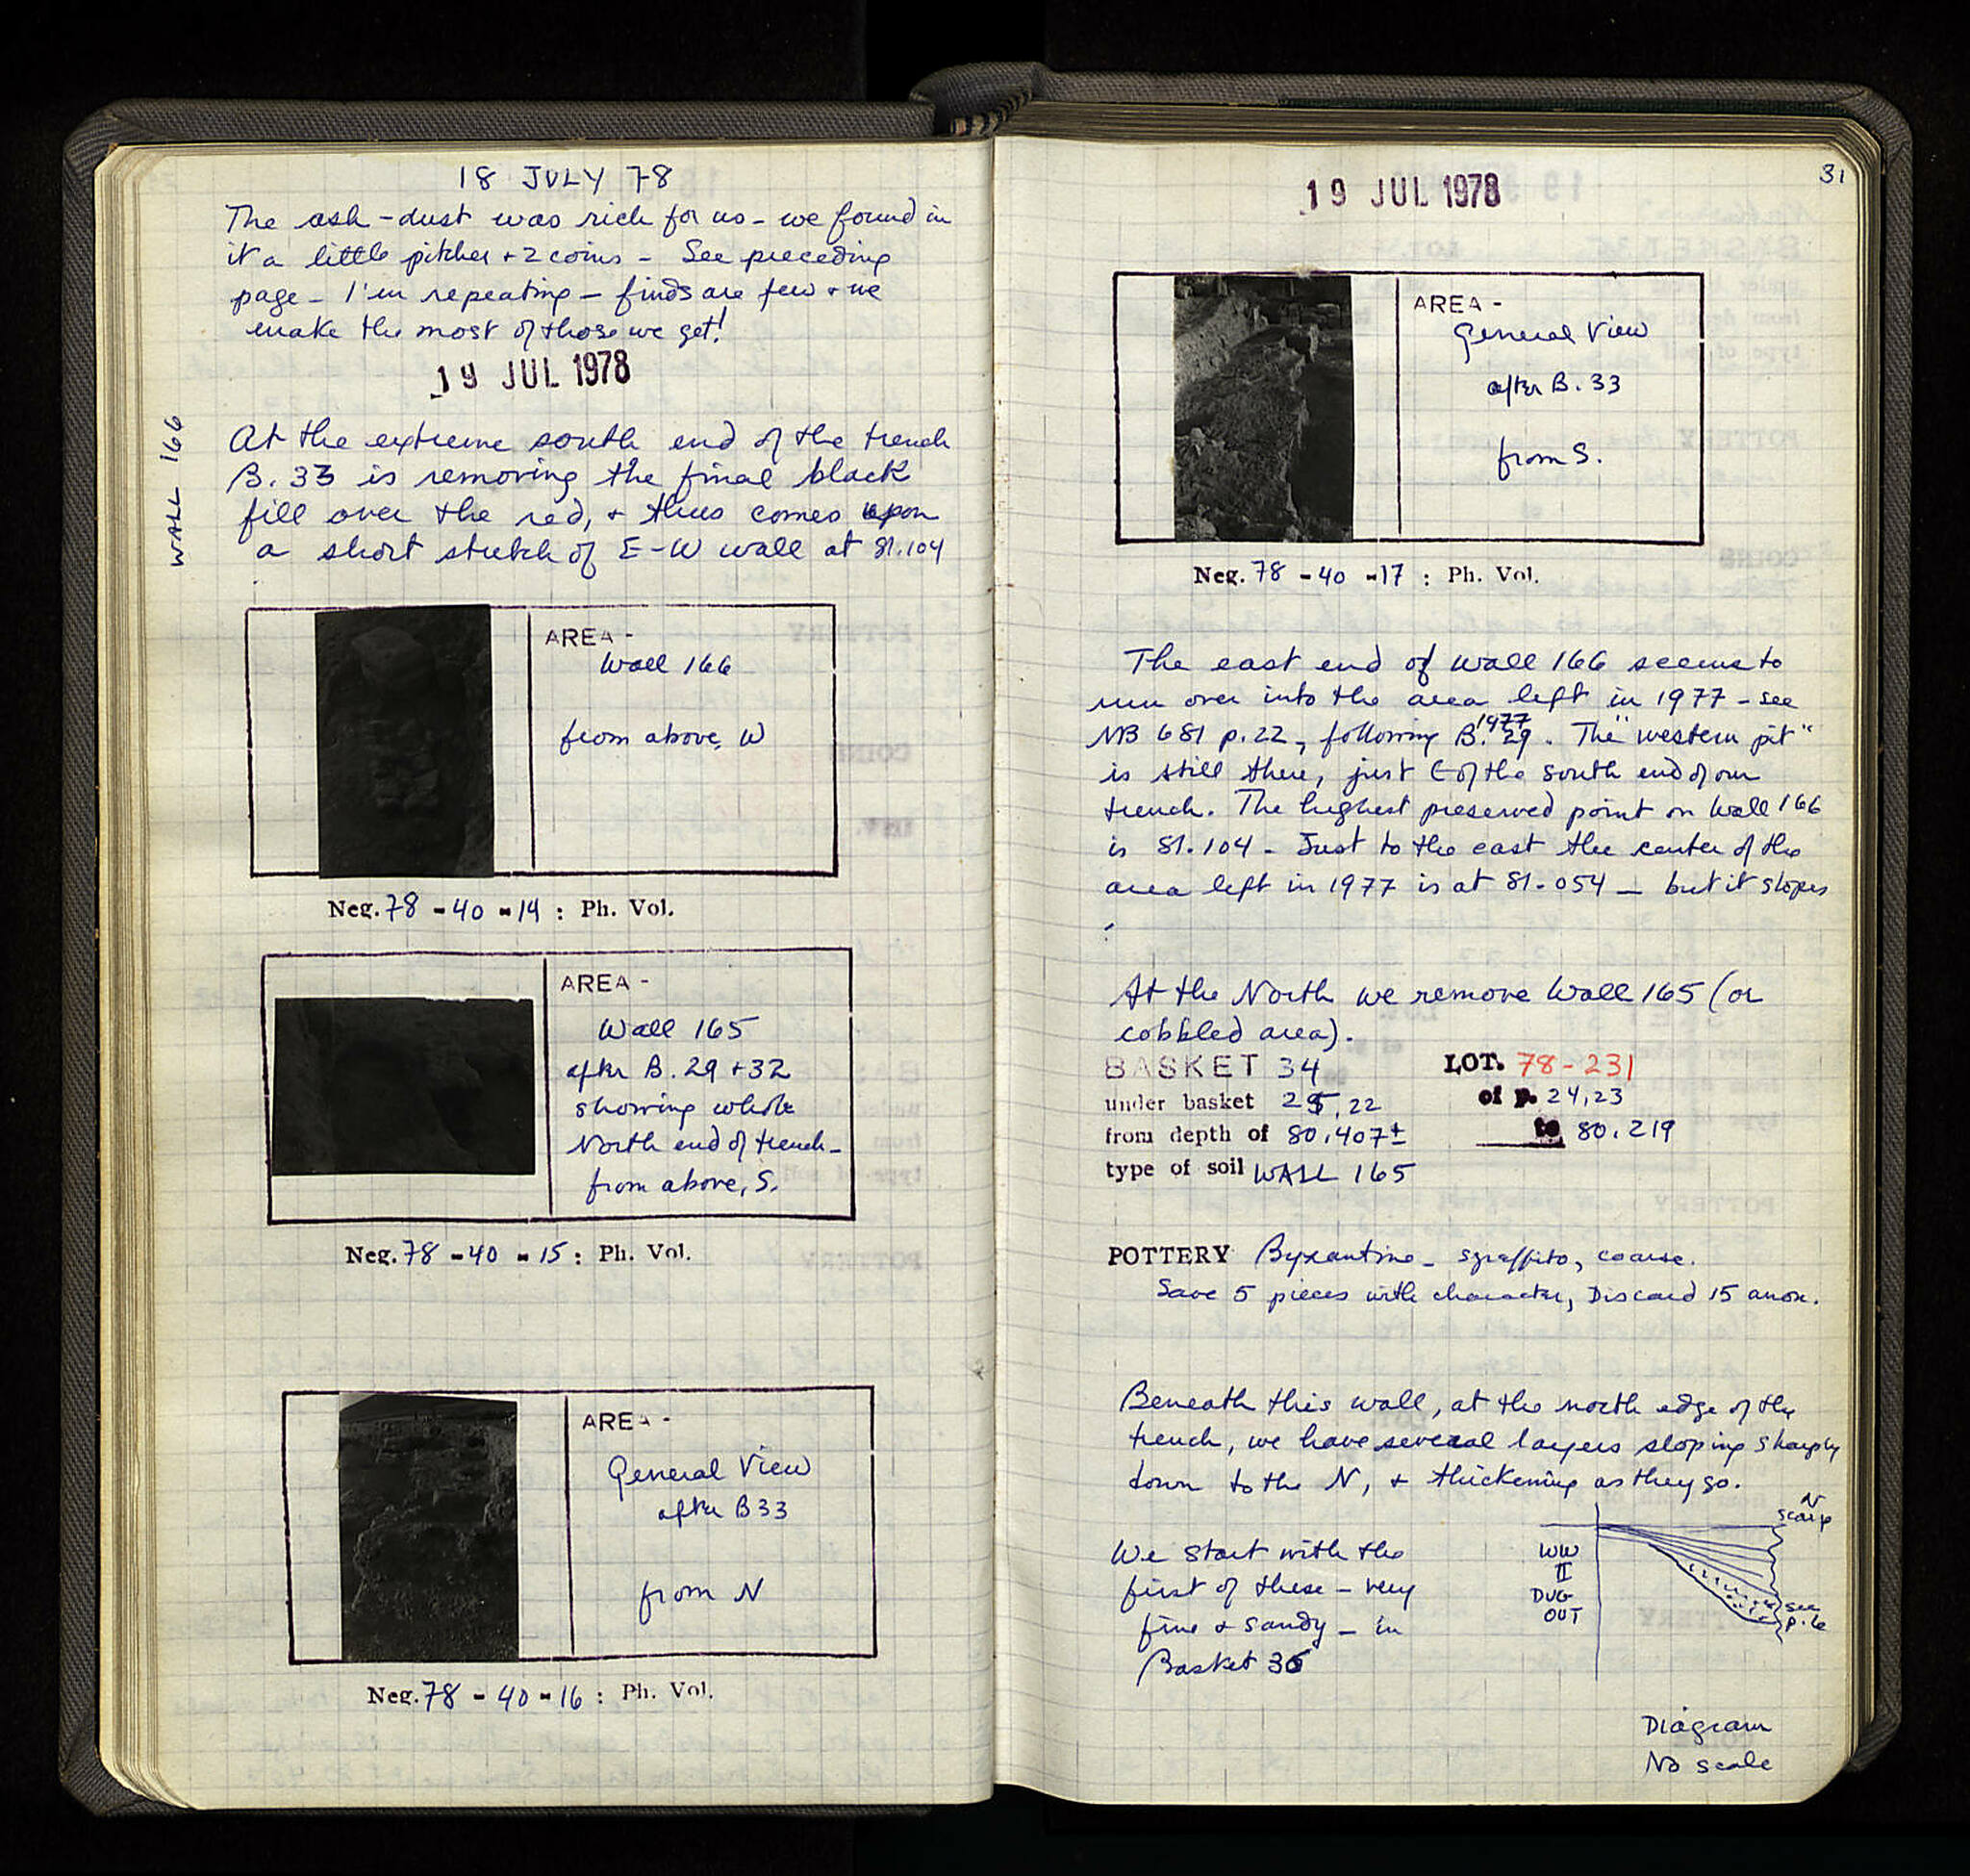 18 JULY 78
The ash-dust was rich for us - we found in
it a little pitcher + 2 coins - See preceding
page - I'm repeating - finds are few + we
make the most of those we get!
19 JUL 1978
WALL 166
At the extreme south end of the trench
B. 33 is removing the final black
fill over the red, + thus comes upon
a short stretch of E-W wall at 81.104
AREA -
Wall 166
from above, W
Neg. 78 - 40 - 14 : Ph. Vol.
AREA -
Wall 165
after B. 29 + 32
showing whole
North end of trench -
from above, S.
Neg. 78 - 40 - 15 : Ph. Vol.
AREA -
General View
after B33
from N
Neg. 78 - 40 - 16 : Ph. Vol.
31
19 JUL 1978
AREA -
General View
after B. 33
from S.
Neg. 78 - 40 - 17 : Ph. Vol.
The east end of wall 166 seems to
run over into the area left in 1977 - see
NB 681 p. 22, following B. 1977 29. The "western pit"
is still there, just E of the south end of our
trench. The highest preserved point on Wall 166
is 81.104 - Just to the east the center of the
area left in 1977 is at 81.054 - but it slopes
At the North we remove Wall 165 (or
cobbled area).
BASKET 34 LOT. 78-231
under basket 25, 22 of p. 24, 23
from depth of 80.407± to 80.219
type of soil WALL 165
POTTERY Byzantine - sgraffito, coarse.
Save 5 pieces with character, Discard 15 anon.
Beneath this wall, at the north edge of the
trench, we have several layers sloping sharply
down to the N, + thickening as they go.
We start with the
first of these - very
fine + sandy - in
Basket 36
N
scarp
WW
II
DUG
OUT
see
p. 6
Diagram
No scale